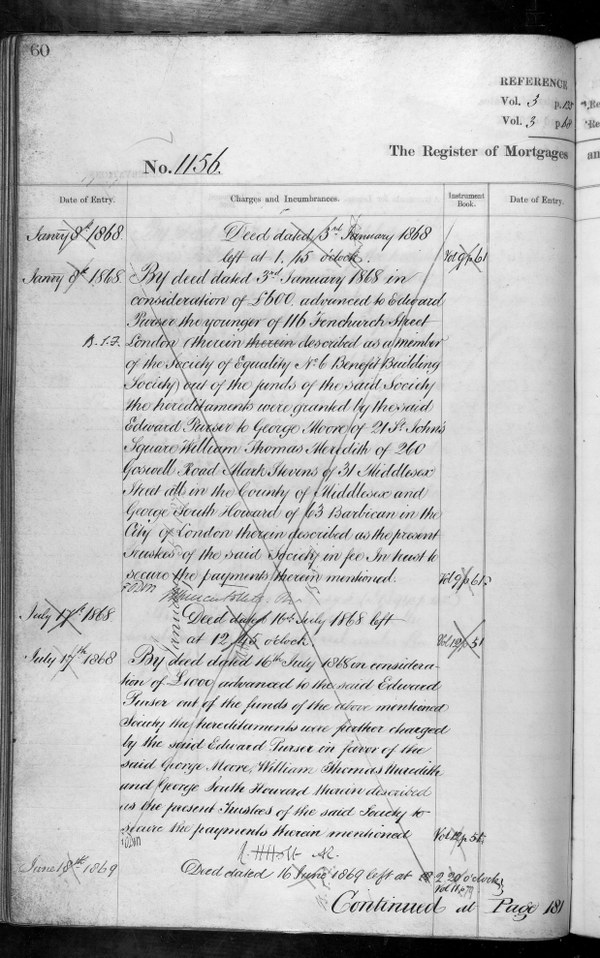 60
REFERENCE
Vol. 5 p.
Vol. 3 p.
No. 1156.
The Register of Mortgages
an
Date of Entry.
Charges and Incumbrances.
Instrument Book.
Date of Entry.
Janry 8th 1868
Deed dated 3rd January 1868
left at 1.15 o'clock.
Vol 9 p 61
Janry 8th 1868
By deed dated 3rd January 1868 in
consideration of £600 advanced to Edward
Purser the younger of 116 Fenchurch Street
London (therein therein described as a member
of the Society of Equality No 6 Benefit Building
Society) out of the funds of the said Society
the hereditaments were granted by the said
Edward Purser to George Moore of 21 St. John's
Square William Thomas Meredith of 260
Goswell Road Mark Stevens of 31 Middlesex
Street all in the County of Middlesex and
George South Howard of 63 Barbican in the
City of London therein described as the present
Trustees of the said Society in fee In trust to
secure the payments therein mentioned.
Vol 9 p 61
July 17th 1868
Deed dated 16th July 1868 left
at 12.45 o'clock
Vol 12 p 51
July 17th 1868
By deed dated 16th July 1868 in considera-
tion of £1000 advanced to the said Edward
Purser out of the funds of the above mentioned
Society the hereditaments were further charged
by the said Edward Purser in favor of the
said George Moore, William Thomas Meredith
and George South Howard therein described
as the present Trustees of the said Society to
secure the payments therein mentioned
Vol 12 p 5
June 18th 1869
Deed dated 16 June 1869 left at 2.20 o'clock
Continued at Page 181